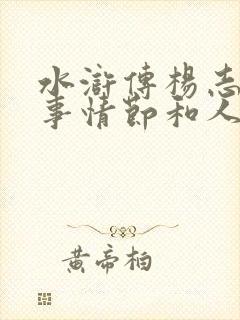 水滸傳楊志
事情節和人
黃帝柏